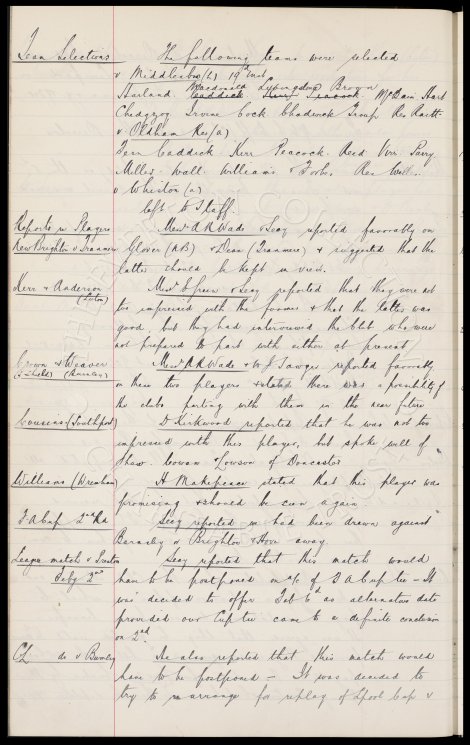 Team Selections The following teams were selected
v Middlesbro (L) 19th inst
Macdonald Livingstone Brown
Harland Caddick Kerr Peacock McBain Hart
Chedgzoy Irvine Cock Chadwick Troup Res Raitt
v Oldham Res (a)
Fern Caddick Kerr Peacock Reid Virr Parry
Miller Wall Williams & Forbes Res
v Whiston (a)
left to Staff.
Reports on Players Messrs A R Wade & Secy reported favorably on
New Brighton v Tranmere Glover (N.B) & Dean (Tranmere) & suggested that the
latter should be kept in view.
Kerr & Anderson Messrs Green & Secy reported that they were not
(Luton) too impressed with the former & that the latter was
good, but they had interviewed the club who were
not prepared to part with either at present
Crown & Weaver Messrs A R Wade & W J Sawyer reported favorably
(S Shields) (Burnley) on these two players & stated there was a possibility of
the clubs parting with them in the near future
Couseins (Southport) D Kirkwood reported that he was not too
impressed with this player, but spoke well of
Shaw. Cowan & Lowson of Doncaster
Williams (Wrexham) H Makepeace stated that this player was
promising & should be seen again
F A Cup 2nd Rd Secy reported we had been drawn against
Barnsley v Brighton & Hove away.
League match v Preston Secy reported that this match would
Feby 2nd have to be postponed on a/c of F A Cup tie - It
was decided to offer Feb 6th as alternative date
provided our Cup tie came to a definite conclusion
on 2nd
CL do v Burnley He also reported that this match would
have to be postponed - It was decided to
try to re arrange for replay of Lpool Cup v